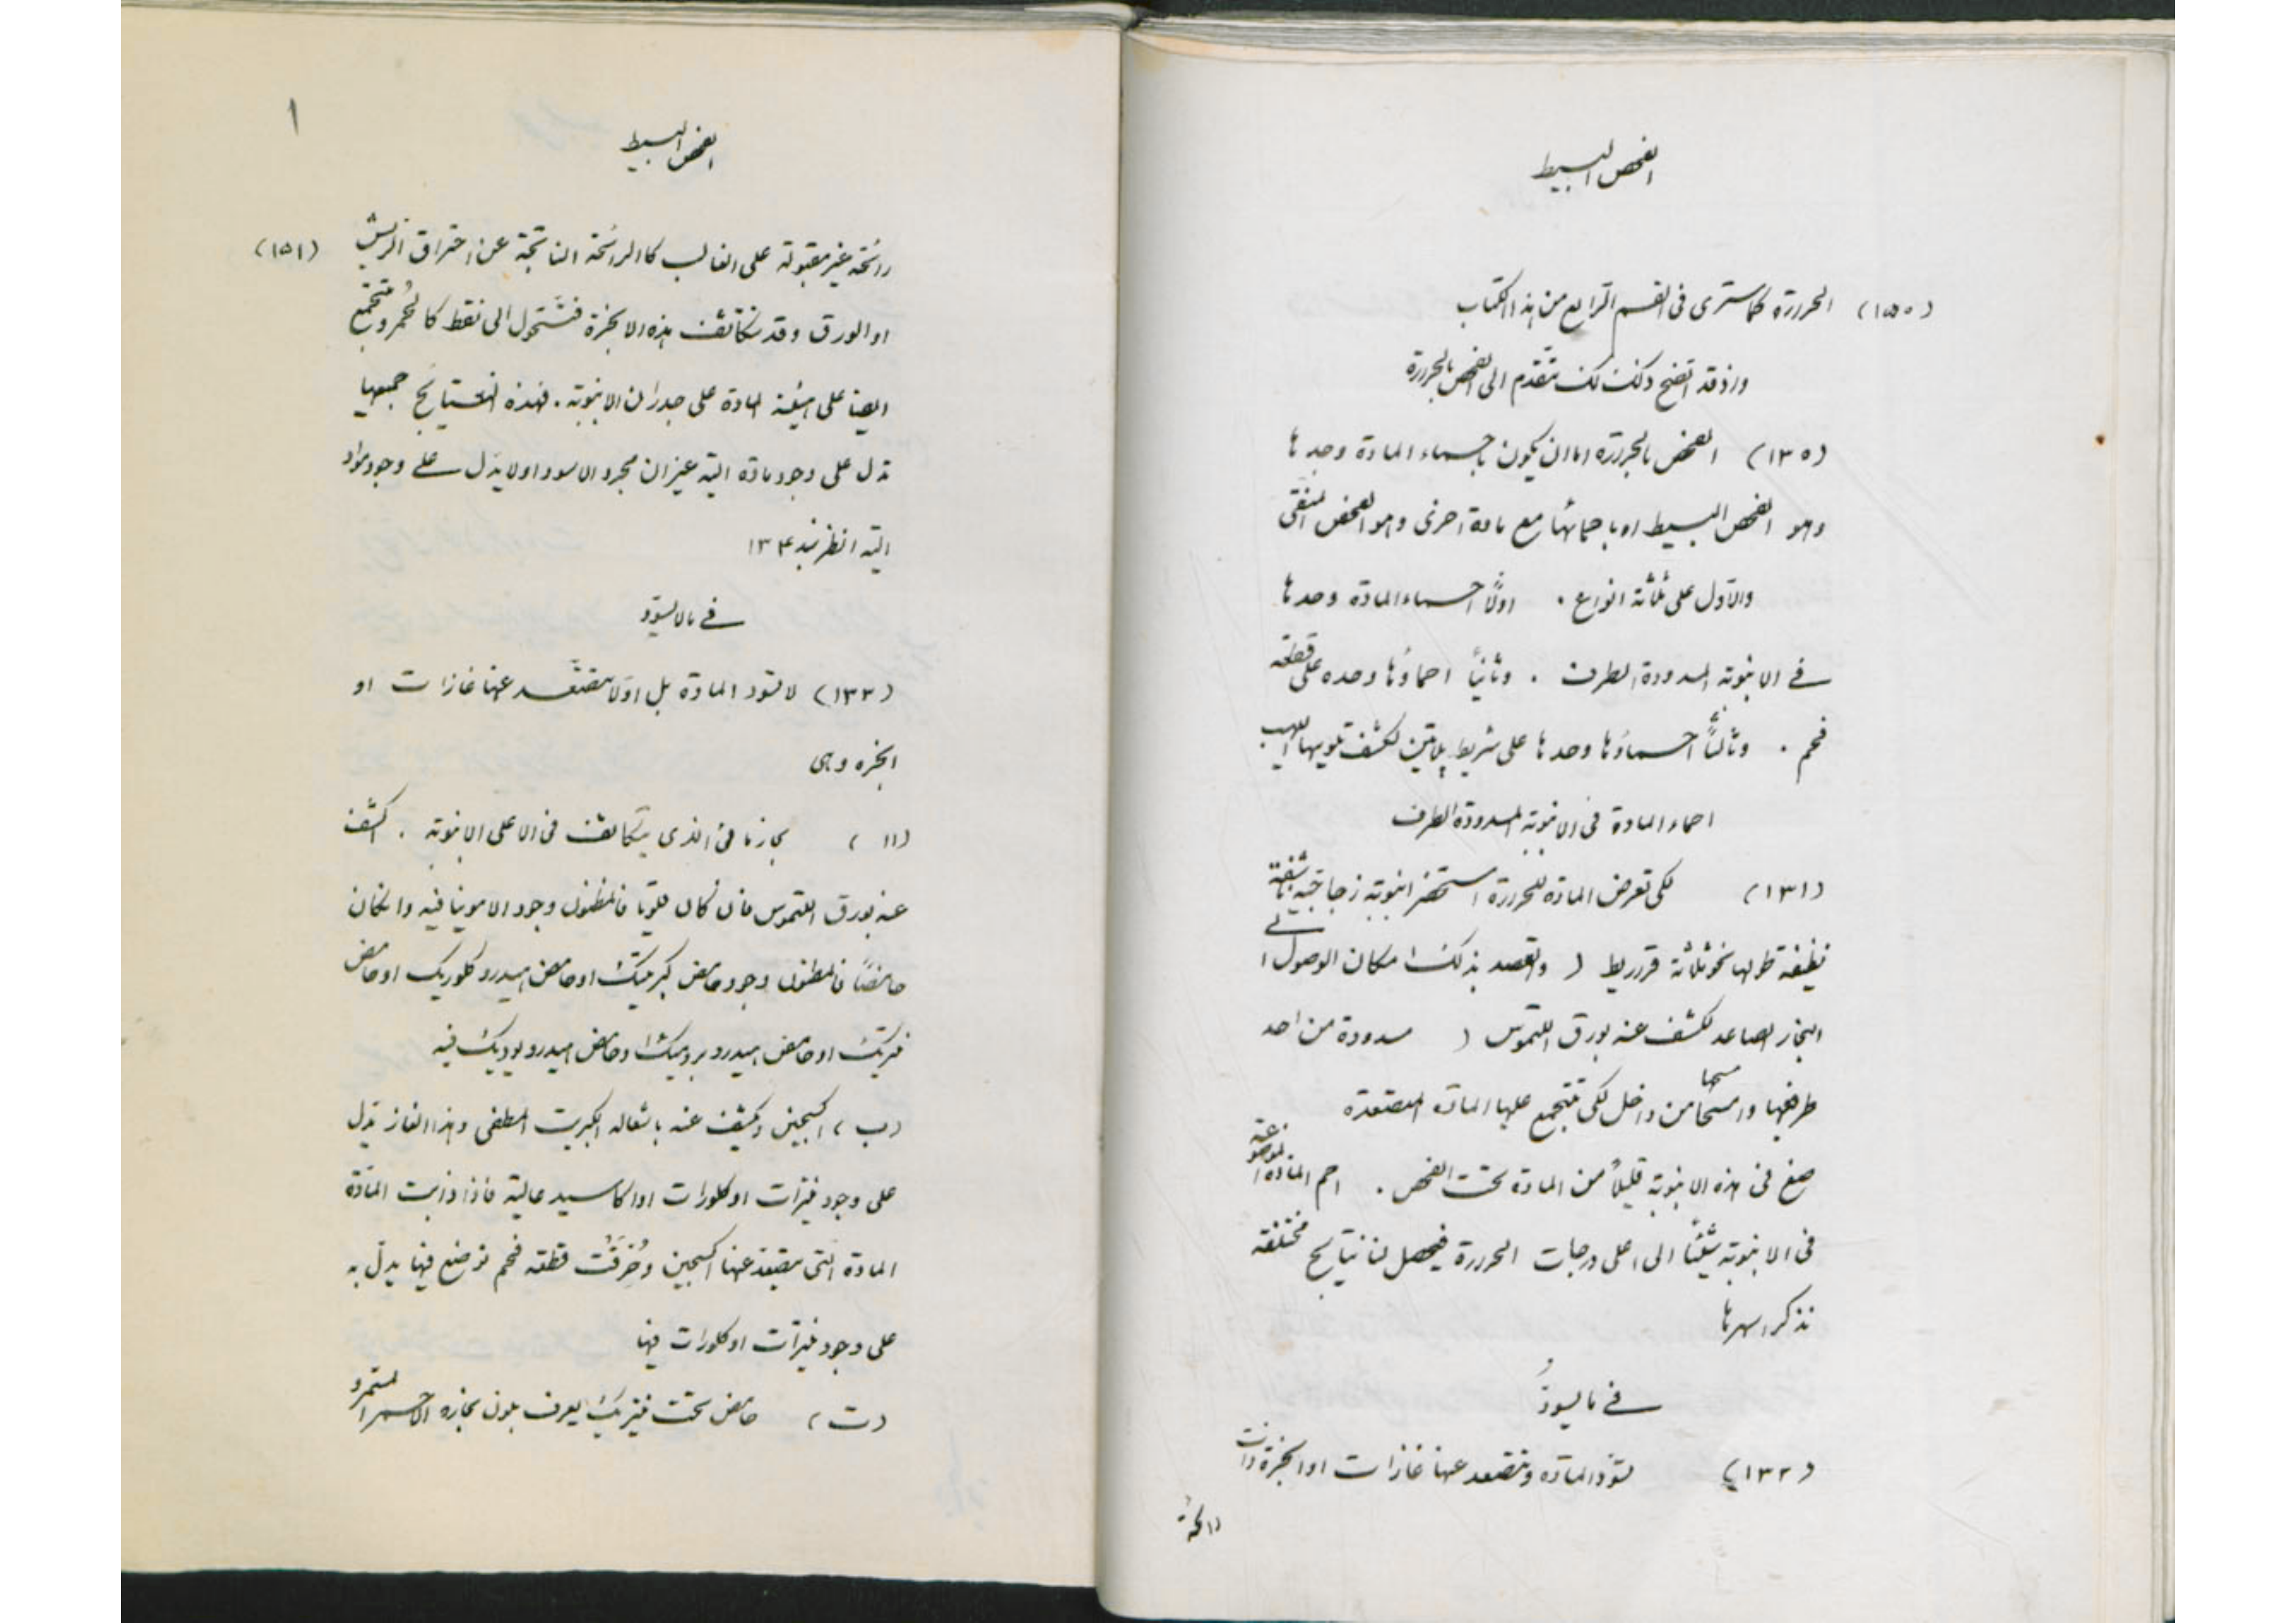 الفحص البسيط
(١٥٠) الحرارة كما سترى فى القسم الرابع من هذا الكتاب
واذ قد اتضح ذلك لك نتقدم الى الفحص بالحرارة
(١٣٠) الفحص بالحرارة اما ان يكون باحماء المادة وحدها
وهو الفحص البسيط او باحمائها مع مادة اخرى وهو الفحص
والاول على ثلاثة انواع . اولًا احماء المادة وحدها
فى الانبوبة المسدودة الطرف . وثانيًا احماؤها وحده على قطعة
فحم . وثالثًا احماؤها وحدها على شريط پلاتين لكشف تلوينها اللهيب
احماء المادة فى الانبوبة المسدودة الطرف
(١٣١) لكى تعرض المادة للحرارة استحضر انبوبة زجاجية ناشفة
نظيفة طولها نحو ثلاثة قراريط ( والقصد بذلك امكان الوصول الى
البخار الصاعد لكشف عنه بورق اللتموس ) مسدودة من احد
طرفيها وامسحها من داخل لكى تتجمع عليها المادة المتصعدة
ضع فى هذه الانبوبة قليلًا من المادة تحت الفحص . احم المادة الموضوعة
فى الانبوبة شيئًا الى اعلى درجات الحرارة فيحصل لنا نتايج مختلفة
نذكر اسهرها
فى ما يسودّ
(١٣٢) تسودّ المادة وتتصعد عنها غازات او ابخرة ذات
رائحة
الفحص البسيط
١
رائحة غير مقبولة على الغالب كالرائحة الناتجة عن احتراق الريش (١٥١)
او الورق وقد تتكاثف هذه الابخرة فتتحول الى نقط كالحمر وتتجمع
ايضا على هيئة المادة على جدران الانبوبة . فهذه النتايج جميعها
تدل على وجود مادة الية غير ان مجرد الاسوداد لا يدل على وجود مواد
الية انظر نبذ ١٣٤
فى ما لا يسودّ
(١٣٣) لا تسود المادة بل اولا يتصعّد عنها غازات او
ابخره وهى
(١١) بخار ما فى الذى يتكاثف فى الاعلى الانبوبة . اكشف
عنه بورق اللتموس فان كان قلويا فالمظنون وجود الامونيا فيه وان كان
حامضًا فالمظنون وجود حامض كبرتيك او حامض هيدروكلوريك او حامض
نتريك او حامض هيدروبروميك او حامض هيدرويوديك فيه
(ب) اكسجين ويكشف عنه باشعاله الكبريت المطفى وهذا الغاز يدل
على وجود نيترات او كلورات او اكاسيد عالية فاذا ذابت المادة
المادة التى يتصعد عنها اكسجين وحُرقَت قطعة فحم توضع فيها يدلّ به
على وجود نيترات او كلورات فيها
(ت) حامض تحت نيتريك يعرف بلون بخاره الاحمر المستمر و